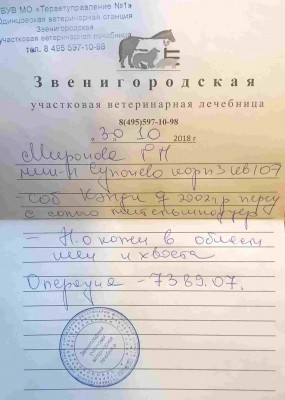 ГБУВ МО «Терветуправление №1»
Одинцовская ветеринарная станция
Звенигородская
участковая ветеринарная лечебница
тел. 8 495 597-10-98
Звенигородская
участковая ветеринарная лечебница
8(495)597-10-98
„30" 10 2018 г
Миронова Р Н
Супонево корп 3 кв 109
- соб
- Н.о кожи в области
шеи и хвоста
Операция - 7389.07.